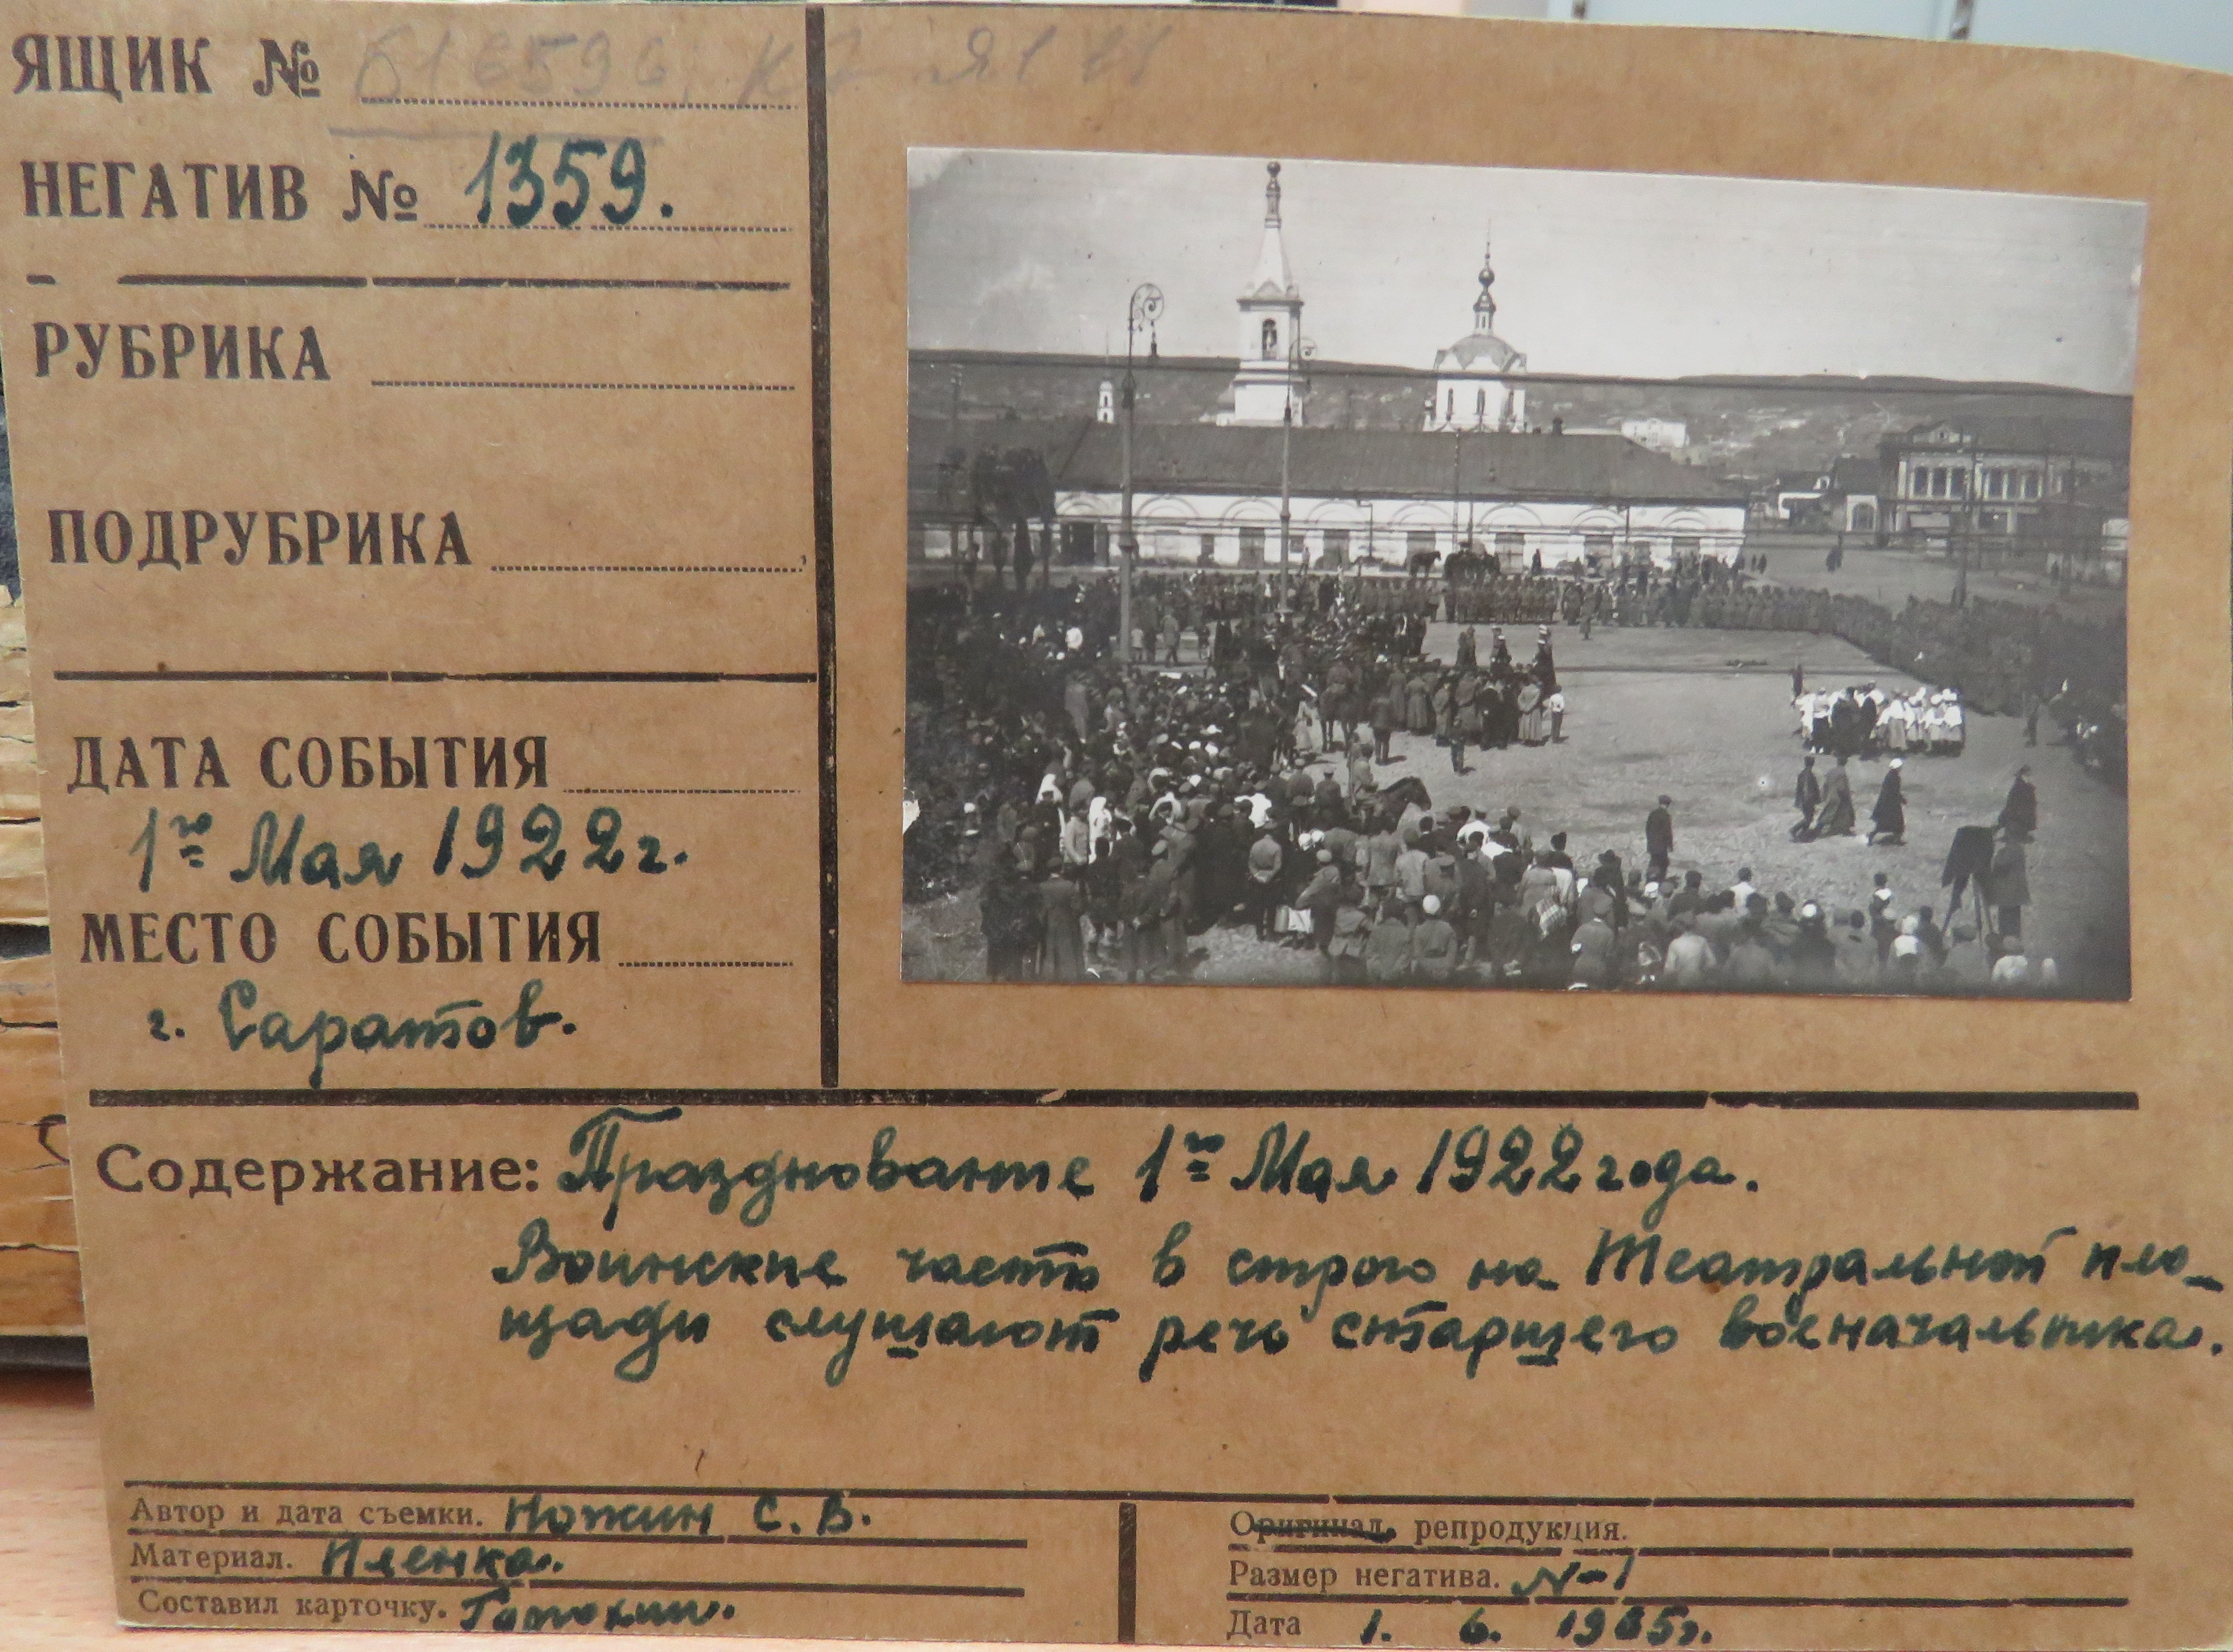 ЯЩИК №
НЕГАТИВ № 1359.
РУБРИКА
ПОДРУБРИКА
ДАТА СОБЫТИЯ
1го Мая 1922 г.
МЕСТО СОБЫТИЯ
г. Саратов.
Содержание: Празднование 1го Мая 1922 года.
Воинские части в строю на Театральной пло-
щади слушают речь старшего военачальника.
Автор и дата съемки. Ножин С. В.
Материал. Пленка.
Составил карточку.
Оригинал, репродукция.
Размер негатива. N-1
Дата 1. 6. 1965г.